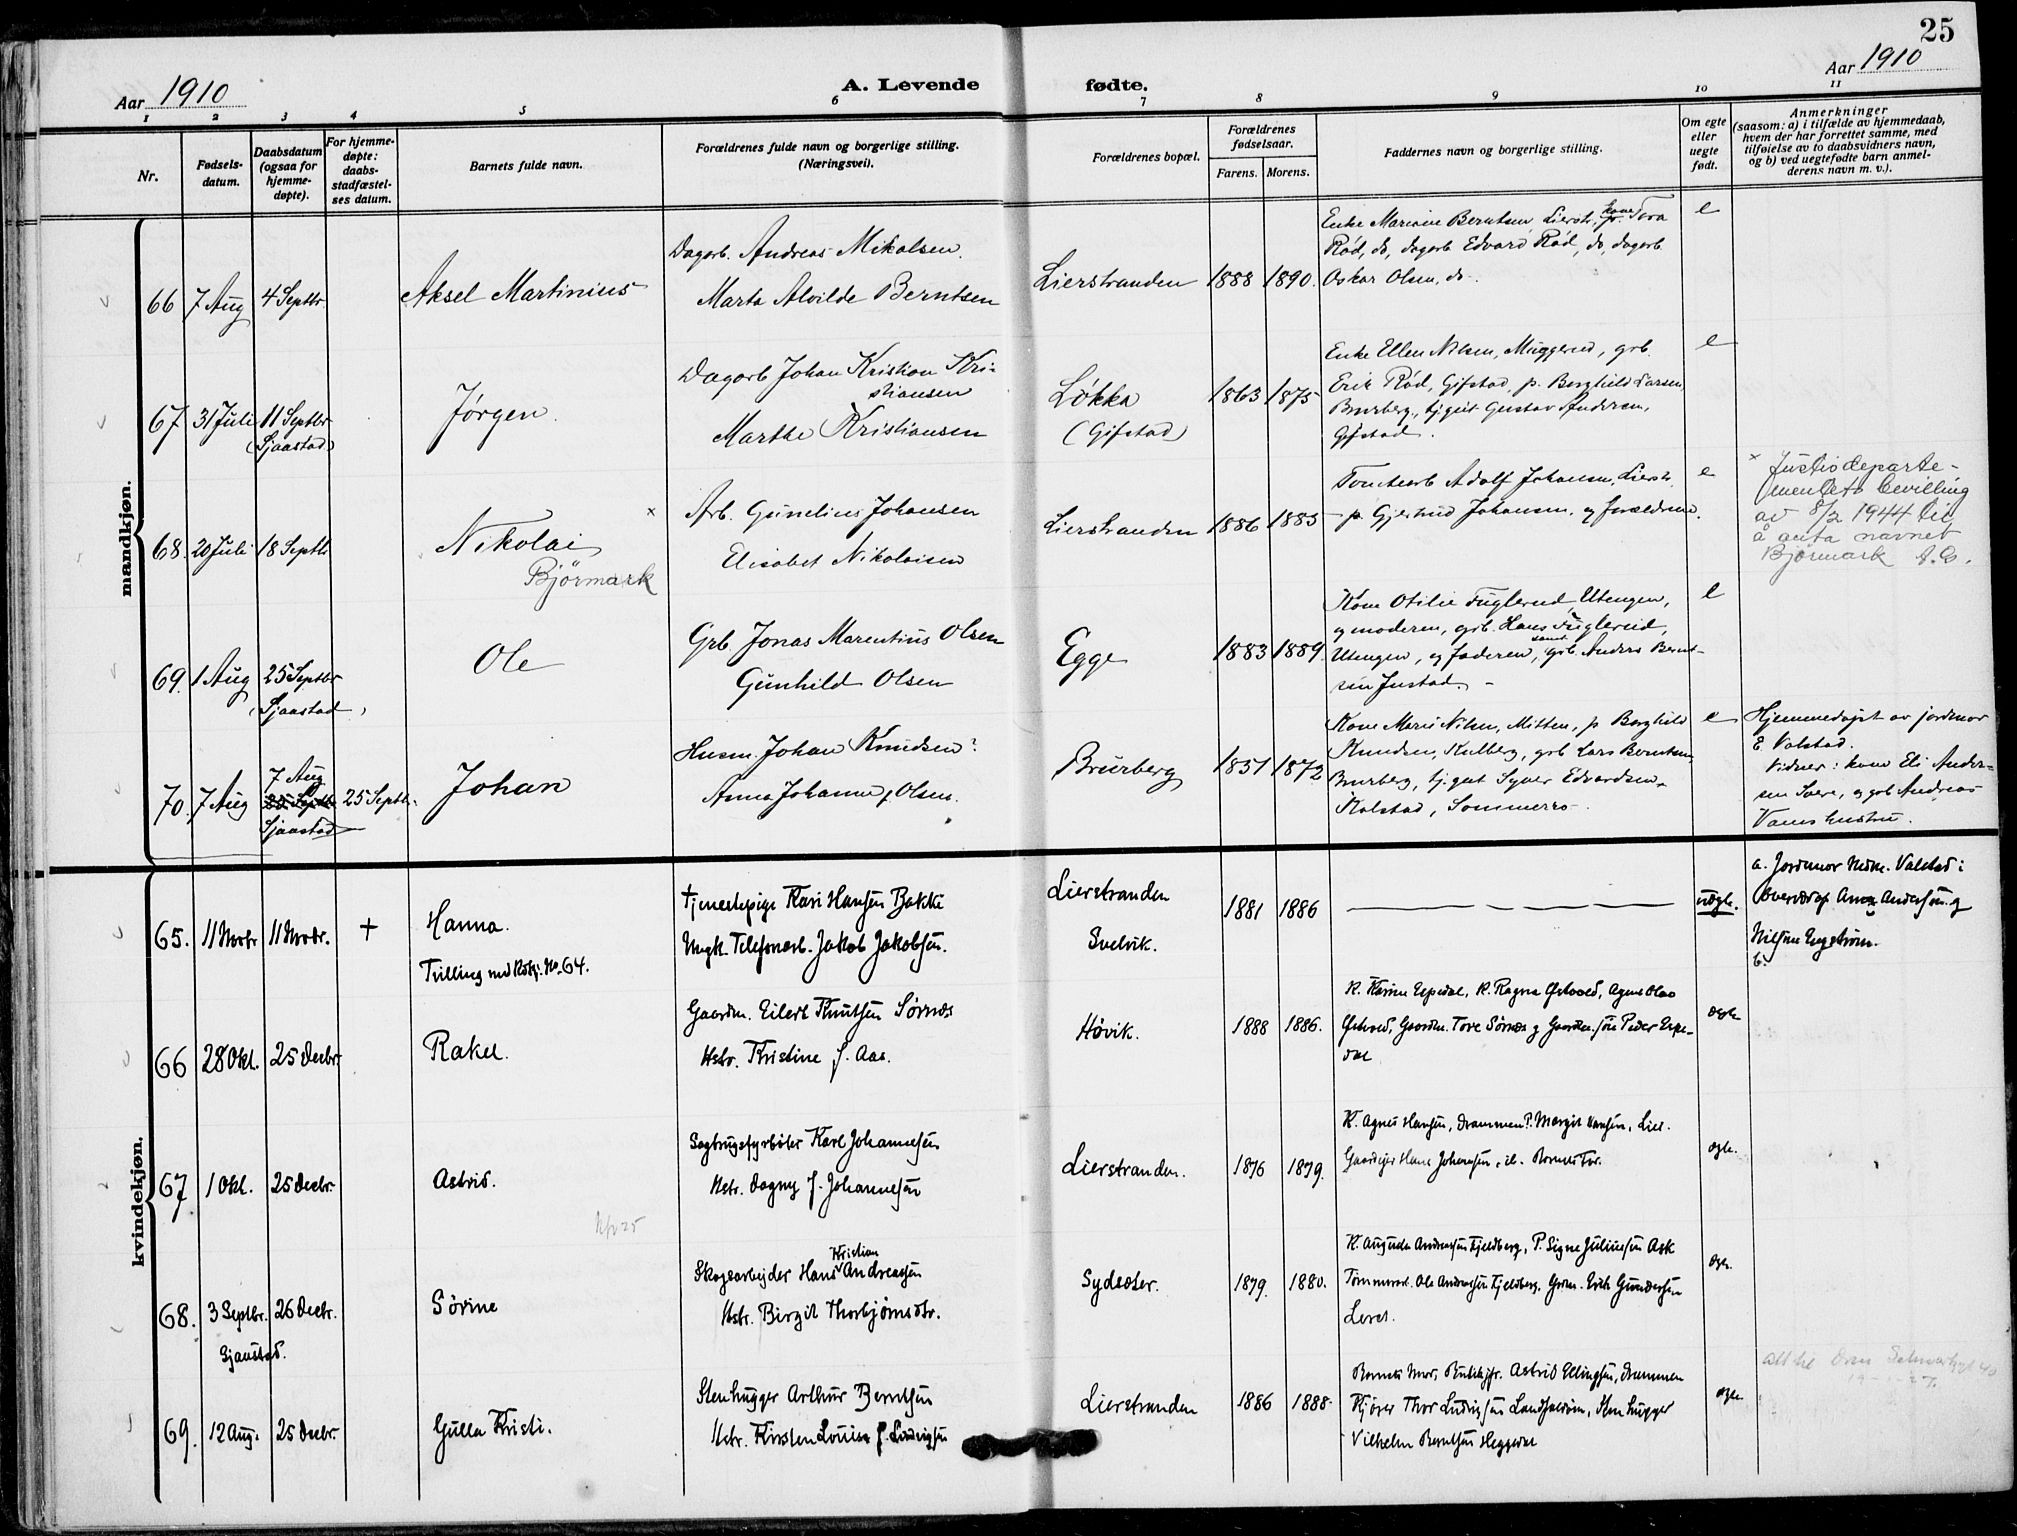 25
Aar 1910
A. Levende fødte.
Aar 1910
1 2 3 4 5 6 7 8 9 10 11
Nr.
Fødsels-
datum.
Daabsdatum
(ogsaa for
hjemme-
døpte).
For hjemme-
døpte:
daabs-
stadfæstel-
ses datum.
Barnets fulde navn.
Forældrenes fulde navn og borgerlige stilling.
(Næringsvei).
Forældrenes bopæl.
Forældrenes
fødselsaar.
Farens. Morens.
Faddernes navn og borgerlige stilling.
Om egte
eller
uegte
født.
Anmerkninger
(saasom: a) i tilfælde av hjemmedaab,
hvem der har forrettet samme, med
tilføielse av to daabsvidners navn,
og b) ved uegtefødte barn anmel-
derens navn m. v.).
mandkjøn.
66 7 Aug 4 Septbr. Aksel Martinius
Dagarb. Andreas Mikalsen.
Marta Alvilde Berntsen
Lierstranden 1888 1890.
Enke Mariane Berntsen, Lierstr., kone Tora
Rød, ds, dagarb Edvard Rød, ds, dagarb
Oskar Olsen, ds.
e
67 31 Juli 11 Septbr
(Sjaastad)
Jørgen.
Dagarb Johan Kristian Kri-
stiansen
Marthe Kristiansen
Løkka
(Gifstad)
1863 1875
Enke Ellen Nilsen, Muggerud, grb.
Erik Rød, Gifstad, p. Borghild Larsen,
Brurberg, tj.gut Gustav Andersen,
Gifstad.
e
68. 20 Juli 18 Septb
Nikolai x
Bjørmark
Arb. Gunelius Johansen
Elisabet Nikolaisen
Lierstranden 1886 1885
Tomtearb Adolf Johansen, Lierstr.
p. Gjertrud Johansen, og forældrene.
e
x Justisdeparte-
mentets bevilling
av 8/2 1944 til
å anta navnet
Bjørmark
69. 1 Aug 25 Septbr
(Sjaastad)
Ole
Grb. Jonas Marentius Olsen
Gunhild Olsen
Egge 1883 1889.
Kone Otilie Fuglerud, Utengen,
og moderen, grb. Hans Fuglerud,
Utengen, og faderen, samt grb. Anders Bernt-
sen Justad.
e
70. 7 Aug 7 Aug
25 Septbr
Sjaastad
25 Septbr.
Johan
Husm. Johan Knudsen
Anna Johanne f. Olsen.
Brurberg 1851 1872
Kone Marie Nilsen, Mitten, p Borghild
Knudsen, Kulberg, grb Lars Berntsen
Brurberg, tj.gut Syver Edvardsen
Kolstad, Sommerro.
e
Hjemmedøpt av jordmor
E. Valstad.
Vidner: kone Eli Ander-
sen Søere, og grb Andreas
kvindekjøn.
65. 11 Novbr 11 Novbr. +
Hanna.
Tvilling med No. 64.
Tjenestepige Kari Hansen Bakke
Ungk. Telefonarb. Jakob Jakobsen.
Lierstranden
Svelvik.
1881 1886
uegte.
a. Jordmor Valstad:
Anna Andersen og
Nilsine Engstrøm.
b.
66 28 Okt. 25 Decbr.
Rakel.
Gaardm. Eilert Knutsen Sørnæs
Hstr. Kristine f. Aas.
Høvik. 1888 1886.
K. Karine Espedal, K. Ragna Østvold, Agent Olav
Østvold, Gaardm. Tore Sørnæs og Gaardm.søn Peder Espe-
dal
egte
67 1 Okt. 25 Decbr.
Astrid.
Sagbrugsfyrbøter Karl Johannesen
Hstr. Dagny f. Johannesen
Lierstranden. 1876 1879.
K. Agnes Hansen, Drammen. P. Margit Hansen, Lier.
Gaardejer Hans Johansen, ib. Barnets Far.
egte.
68. 3 Septbr. 26 Decbr.
Sjaastad.
Sørine
Skogsarbejder Hans Kristian Andreassen
Hstr. Birgit Thorbjørnsdtr.
Sydeøter. 1879. 1880.
K. Augusta Andreassen Fjeldberg, P. Signe Juliussen Ask
Tømmerarb. Ole Andreassen Fjeldberg, Grdm. Erik Gundersen
egte.
69. 12 Aug. 25 Decbr.
Gulla Kristi.
Stenhugger Arthur Berntsen
Hstr. Kirsten Louise f. Ludvigsen
Lierstranden 1886 1888
Barnets Mor, Butikjfr. Astrid Ellingsen, Drammen
Kjører Thor Ludvigsen Landfaldøen, Stenhugger
Vilhelm Berntsen Heggedal
egte.